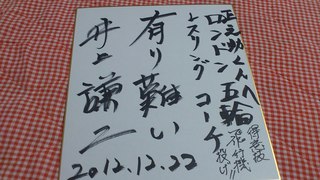 正之助くんへ
ロンドン五輪
レスリング コーチ
得意技
飛行機
投げ!!
有り難い
井上謙二
2012.12.22